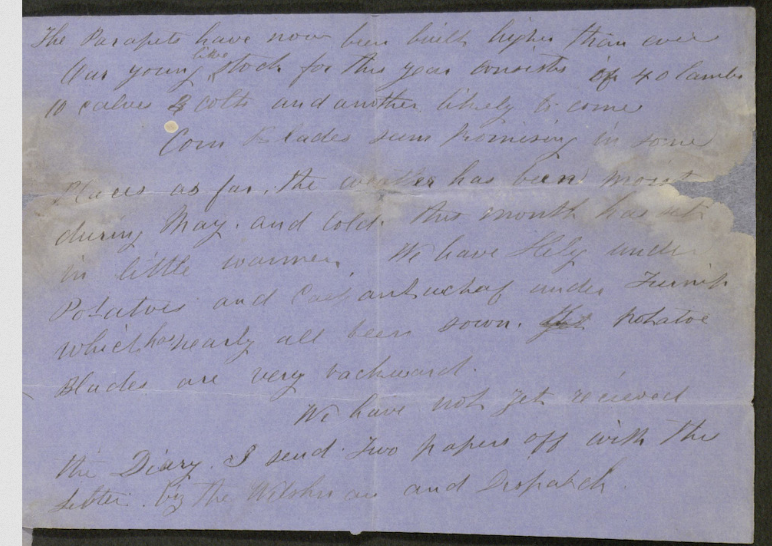 The Parapets have now been built higher than ever
Our young live stock for this year consists of 40 lambs
10 calves 3 colts and another likely to come
Corn Blades seem Promising in some
Places as far. the weather has been moist
during May. and cold. this month has set
in little warmer. We have under
Potatoes and under Turnip
which has nearly all been sown. potatoe
Blades are very backward.
We have not yet recieved
the Diary. I send Two papers off with the
letter. by the and Dispatch.